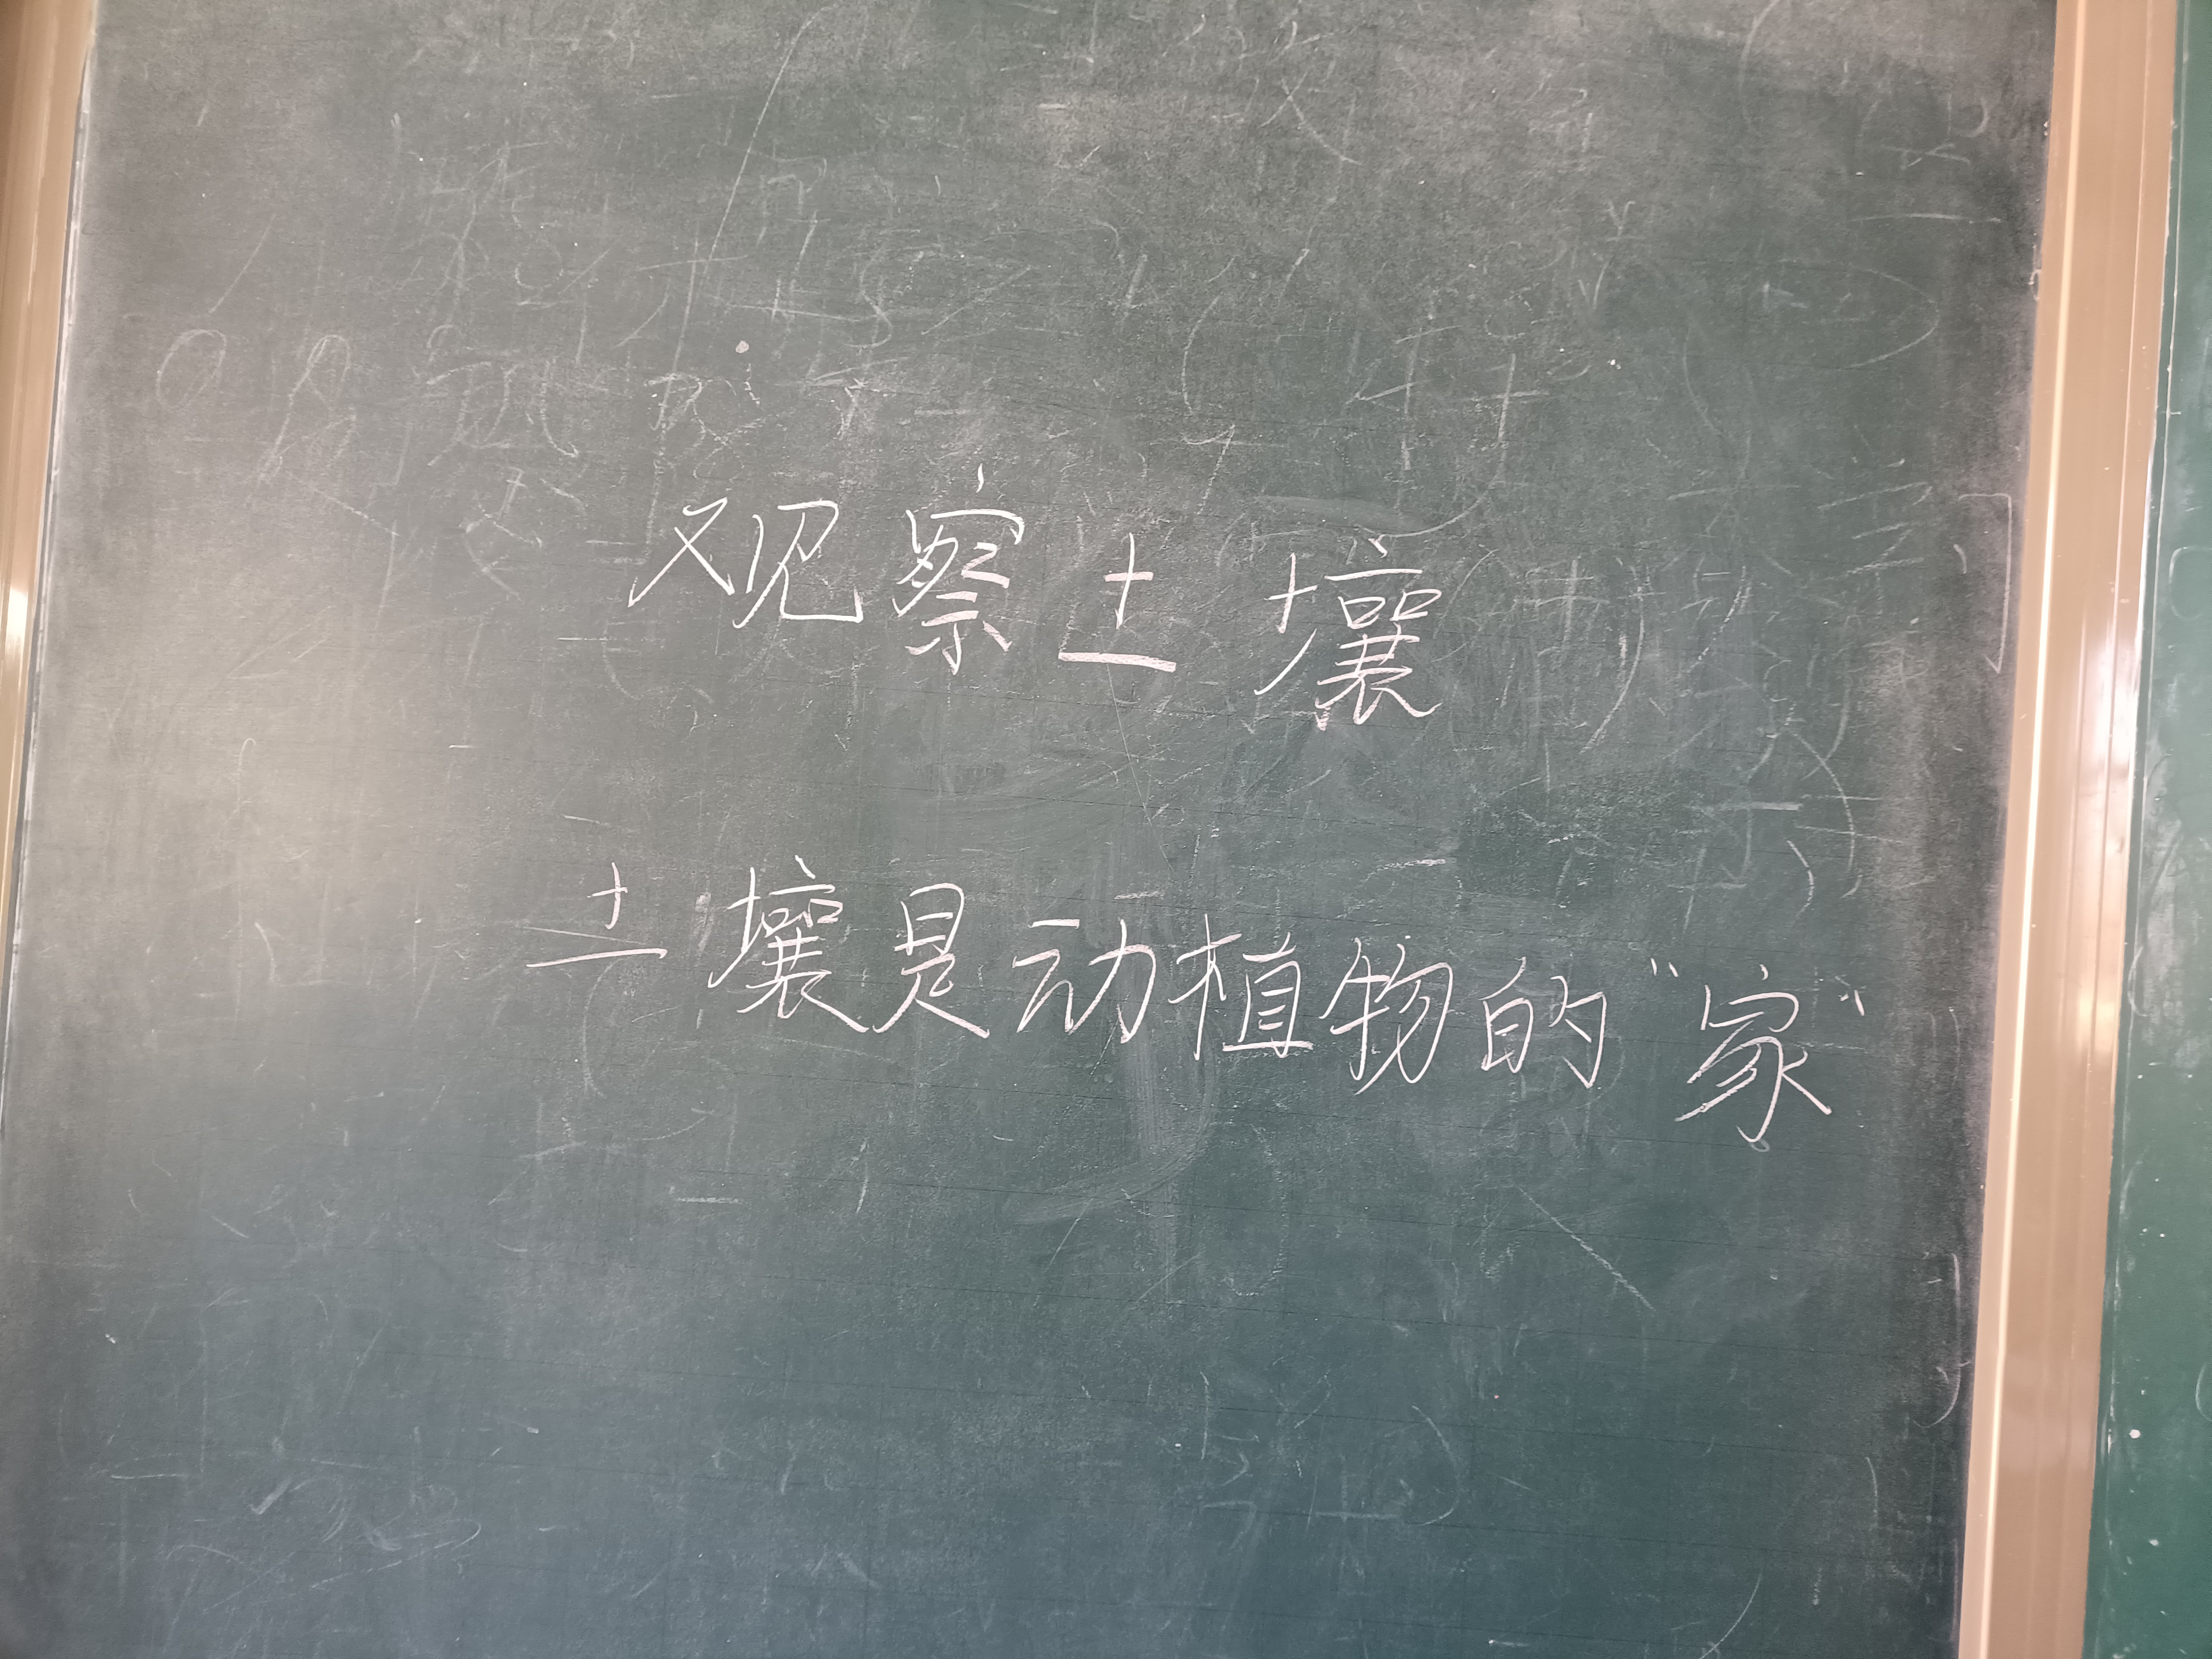 观察土壤
土壤是动植物的“家”